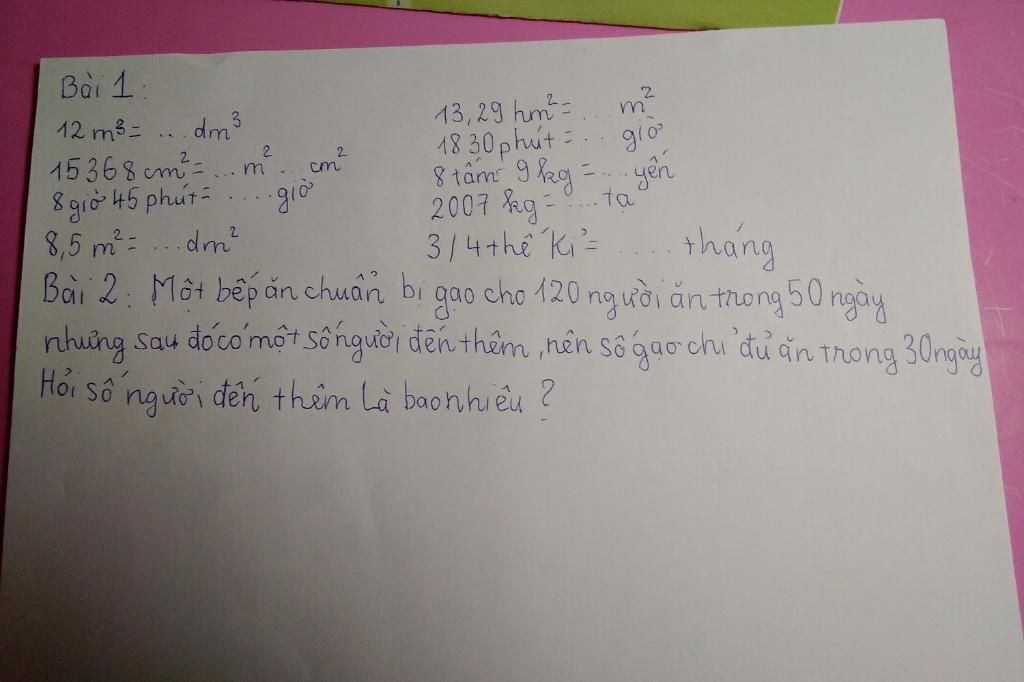 Bài 1:
12 m³ = ... dm³
13,29 hm² = ... m²
15368 cm² = ... m² ... cm²
1830 phút = ... giờ
8 giờ 45 phút = ..... giờ
8 tấm 9 kg = .... yến
2007 kg = .... tạ
8,5 m² = ... dm²
3/4 thế kỉ = ..... tháng
Bài 2: Một bếp ăn chuẩn bị gạo cho 120 người ăn trong 50 ngày
nhưng sau đó có một số người đến thêm, nên số gạo chỉ đủ ăn trong 30 ngày
Hỏi số người đến thêm là bao nhiêu?